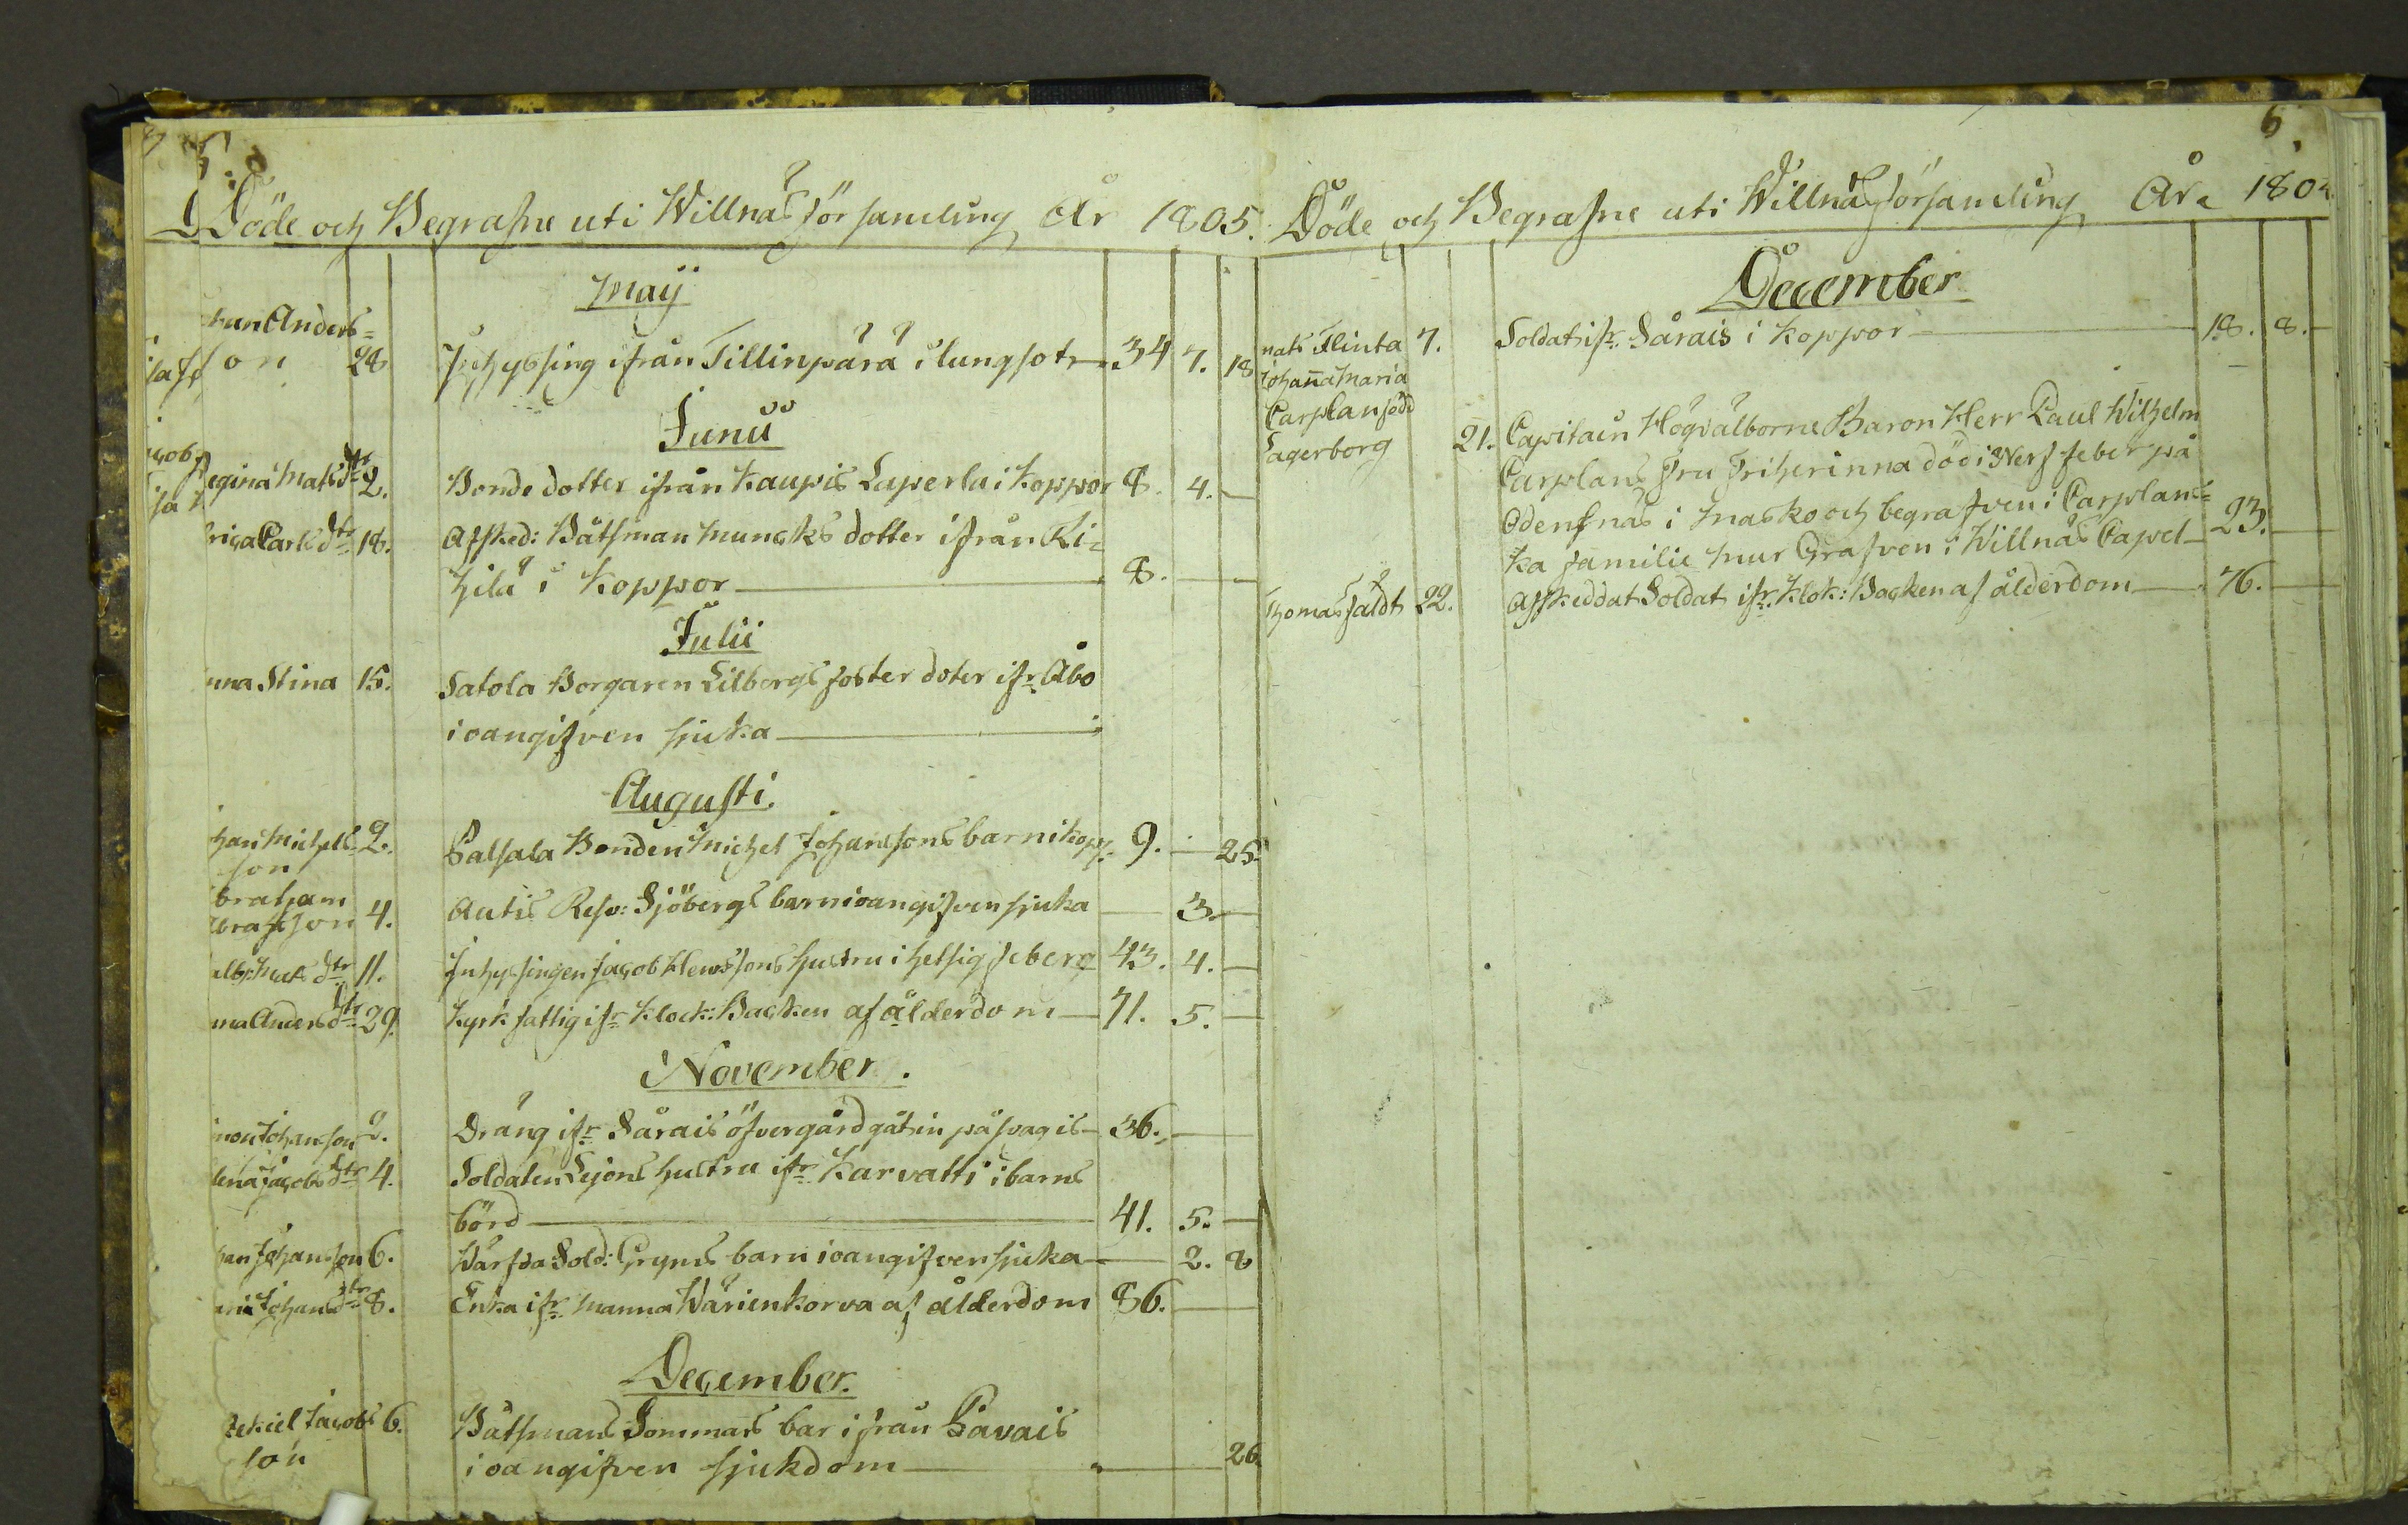 5.
Döde och Begrafne uti Willnäs Församling År 1805.
Maij
Anders=
son 28 Inhysing ifrån Tillinpärä i lungsot 34 7. 18
Junii
Regina Mats dtr 2. Bonde dotter ifrån Kaupis Laperla i Koppor 8. 4.
Carls dtr 18. Afsked: Båtsman Muncks dotter ifrån Ki=
hilä i Koppor 8.
Julii
nna Stina 15. Satola Borgaren Lilbergs foster doter ifr. Åbo
i oangifven siuka
Augusti.
han Michels 2. Palsala Bonden Michel Johanssons barn i kopp. 9. 25.
son
braham
son 4. Autis Resv: Sjöbergs barn i oangifven sjuka 3.
Mats dtr 11. Inhysingen Jacob Klemssons hustru i hetsig feber 43. 4.
na Anders dtr 29. Kyrk fattig ifr Klock: Backen af ålderdom 71. 5.
November.
mon Johanson 2. Dräng ifr Särais öfvergård gåt in på svag is 36.
lena Jacobs dtr 4. Soldaten Lejons hustru ifr Karvatti i barns
börd 41. 5.
han Johansson 6. Sold: Gryms barn i oangifven sjuka 2. 8
aria Johans dtr 8. Enka ifr Manna Wärienkorva af ålderdom 86.
December.
zekiel Jacobs 6. Båtsmans Sommars bar ifrån Pavais
son i oangifven sjukdom 26.
6.
Döde och Begrafne uti Willnäs Församling År 180
December
Mats Flinta 7. Soldat ifr. Särais i koppor 18. 8.
Johanna Maria
Carplan född
Lagerborg 21. Capitain Högvälborne Baron Herr Paul Wilhelm
Carplans Fru Friherinna död i Nerf feber på
Odensnäs i Masko och begrafven i Carplans=
ka familie mur Grafven i Willnäs Capel 23.
Thomas Fäldt 22. Afskeddat Soldat ifr. Klok: Backen af ålderdom 76.